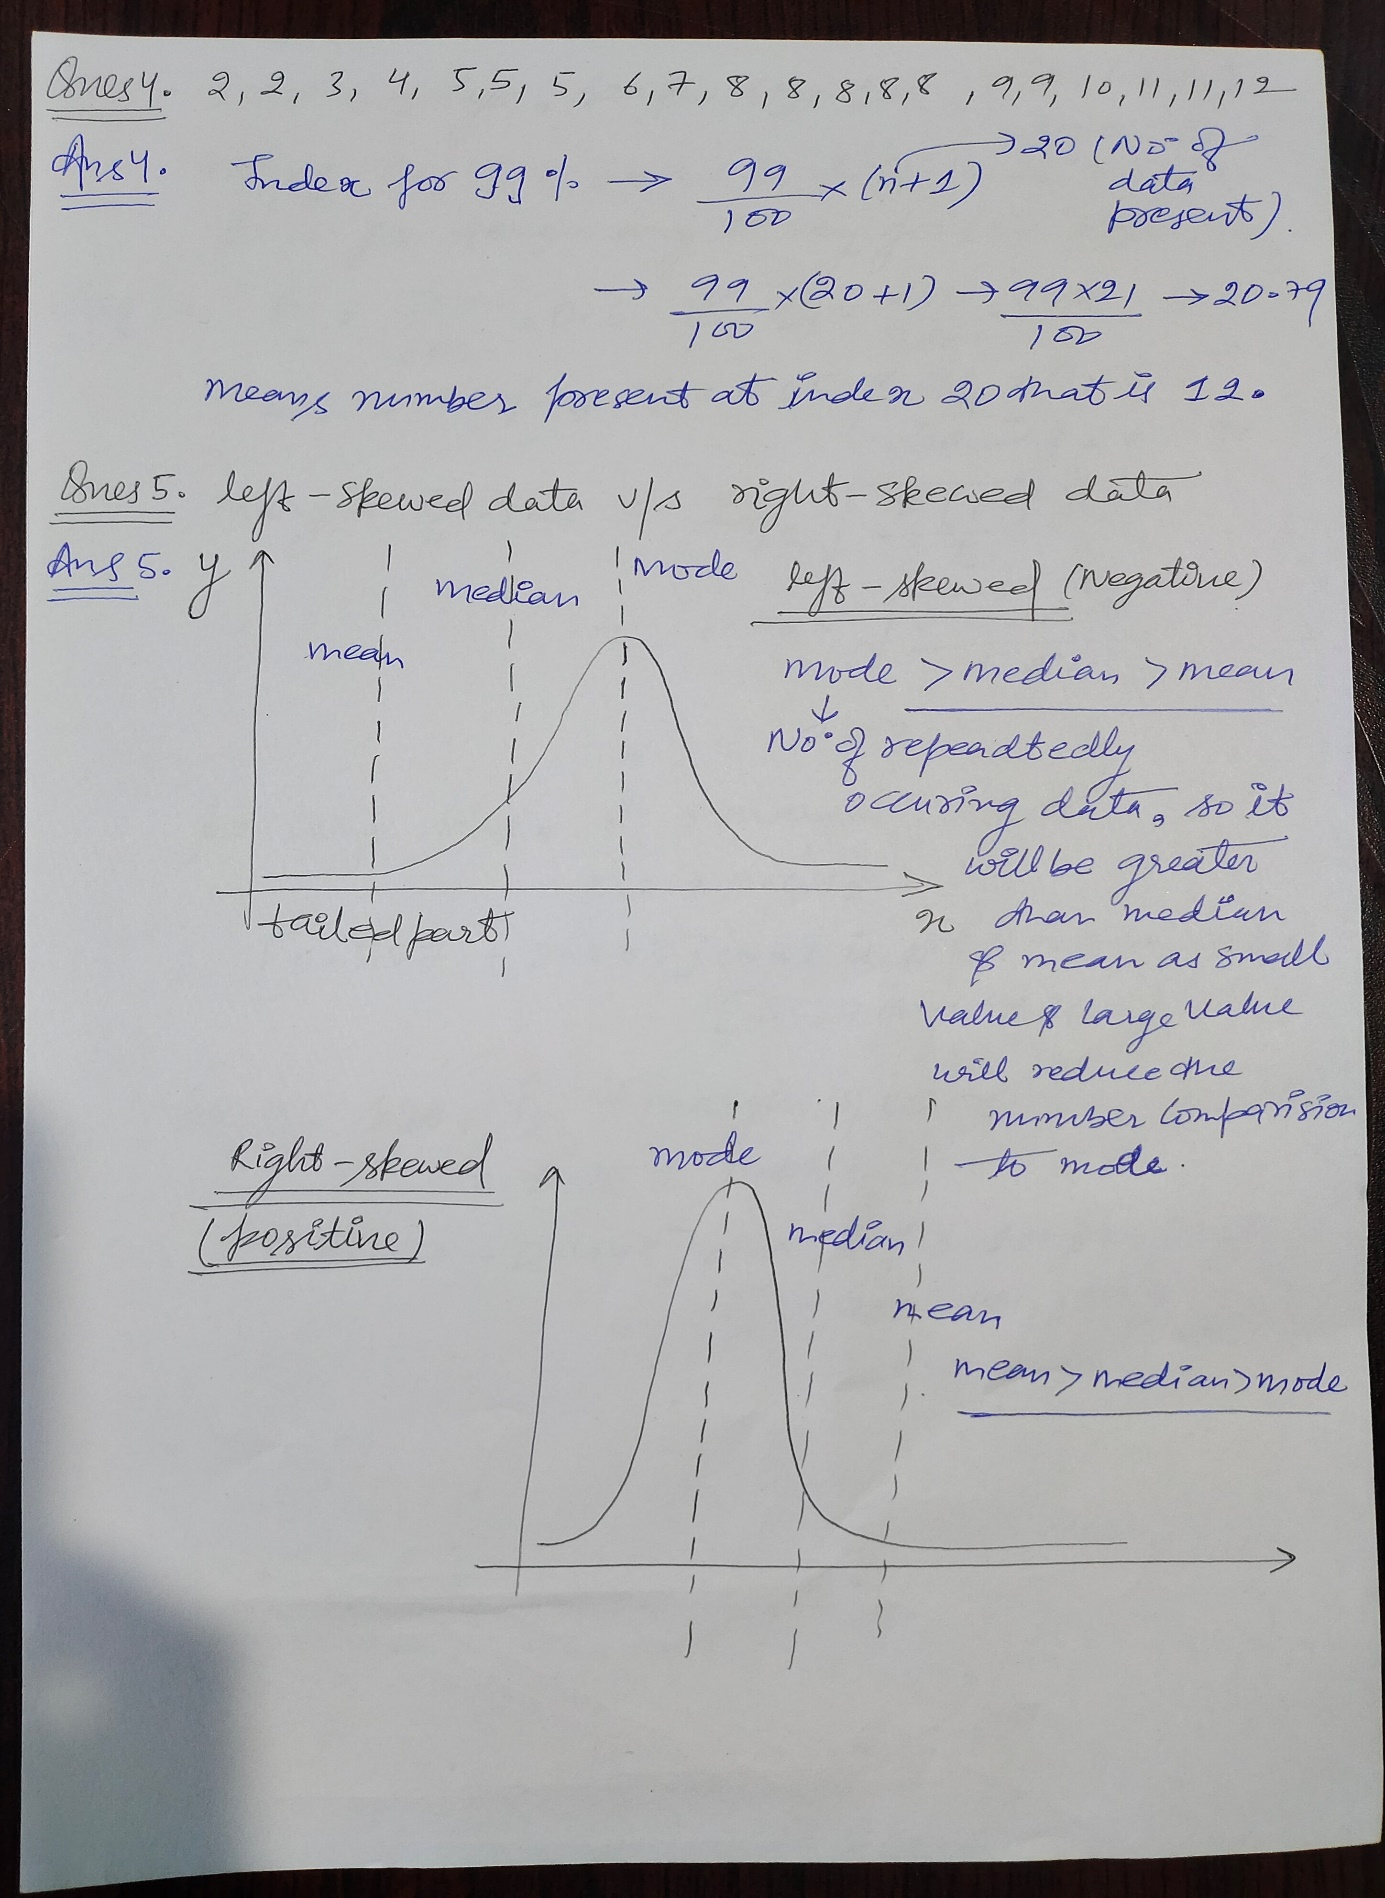 Ques 4. 2, 2, 3, 4, 5,5, 5, 6, 7, 8, 8, 8,8,8 , 9,9, 10, 11, 11, 12
Ans 4. Index for 99% → 99/100 × (n+1) → 20 (No. of data present).
→ 99/100 ×(20+1) → 99×21/100 → 20.79
means number present at index 20 that is 12.
Ques 5. left-skewed data v/s right-skewed data
Ans 5. y
mean
median
mode
left-skewed (Negative)
mode > median > mean
↓
No. of repeadtedly
occuring data, so it
will be greater
than median
& mean as small
value & large value
will reduce the
number comparision
to mode.
tailed part
x
Right-skewed
(positive)
mode
median
mean
mean > median > mode